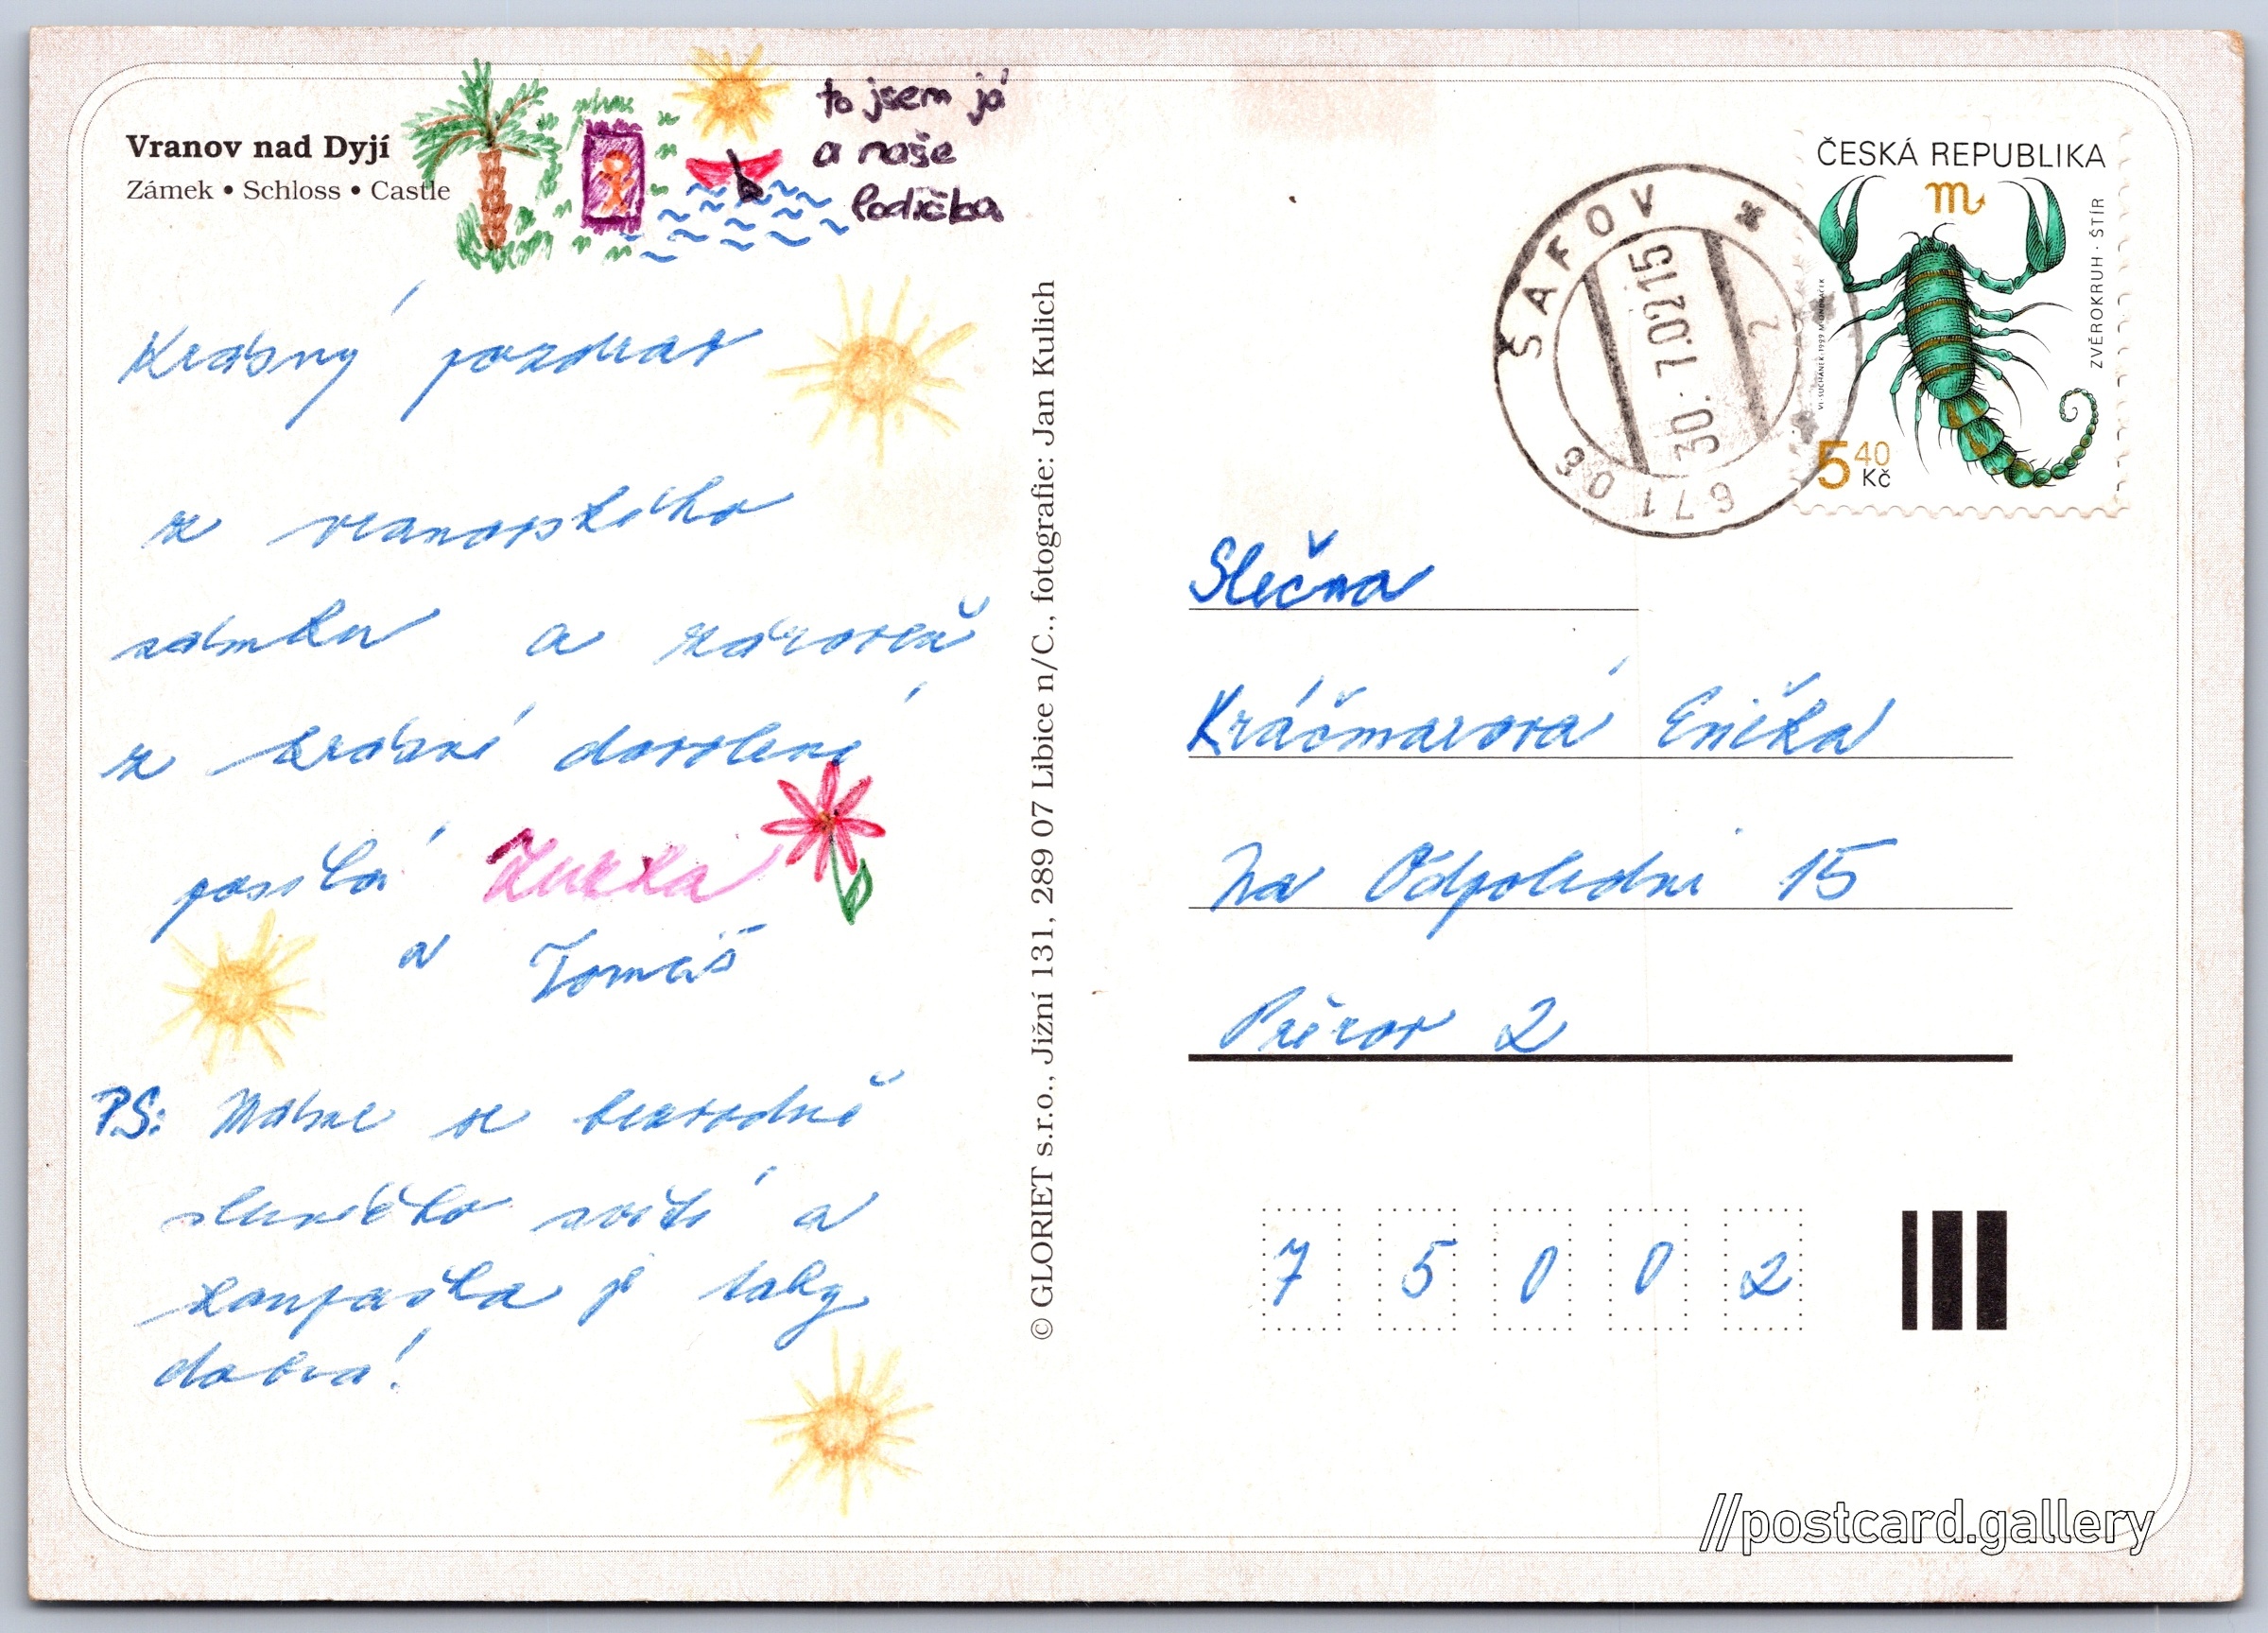 Vranov nad Dyjí
Zámek • Schloss • Castle
to jsem já
a naše
lodička
Krásný pozdrav
z vranovského
zámku a zároveň
z krásné dovolené
posílá Zuzka
a Tomáš
PS: Máme se bezvadně
sluníčko svítí a
koupačka je taky
dobrá!
© GLORIET s.r.o., Jižní 131, 289 07 Libice n/C., fotografie: Jan Kulich
ŠAFOV *
30. 7.02 15
2
671 06
ČESKÁ REPUBLIKA
ZVĚROKRUH · ŠTÍR
5 40 Kč
Slečna
Kráčmarová Enička
Na Odpoledni 15
Přerov 2
7 5 0 0 2
//postcard.gallery